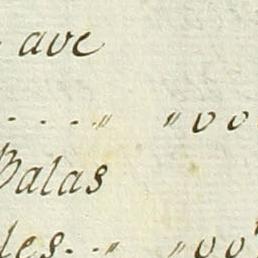 ave
. . . . " " 00
Balas
les. . " " 00